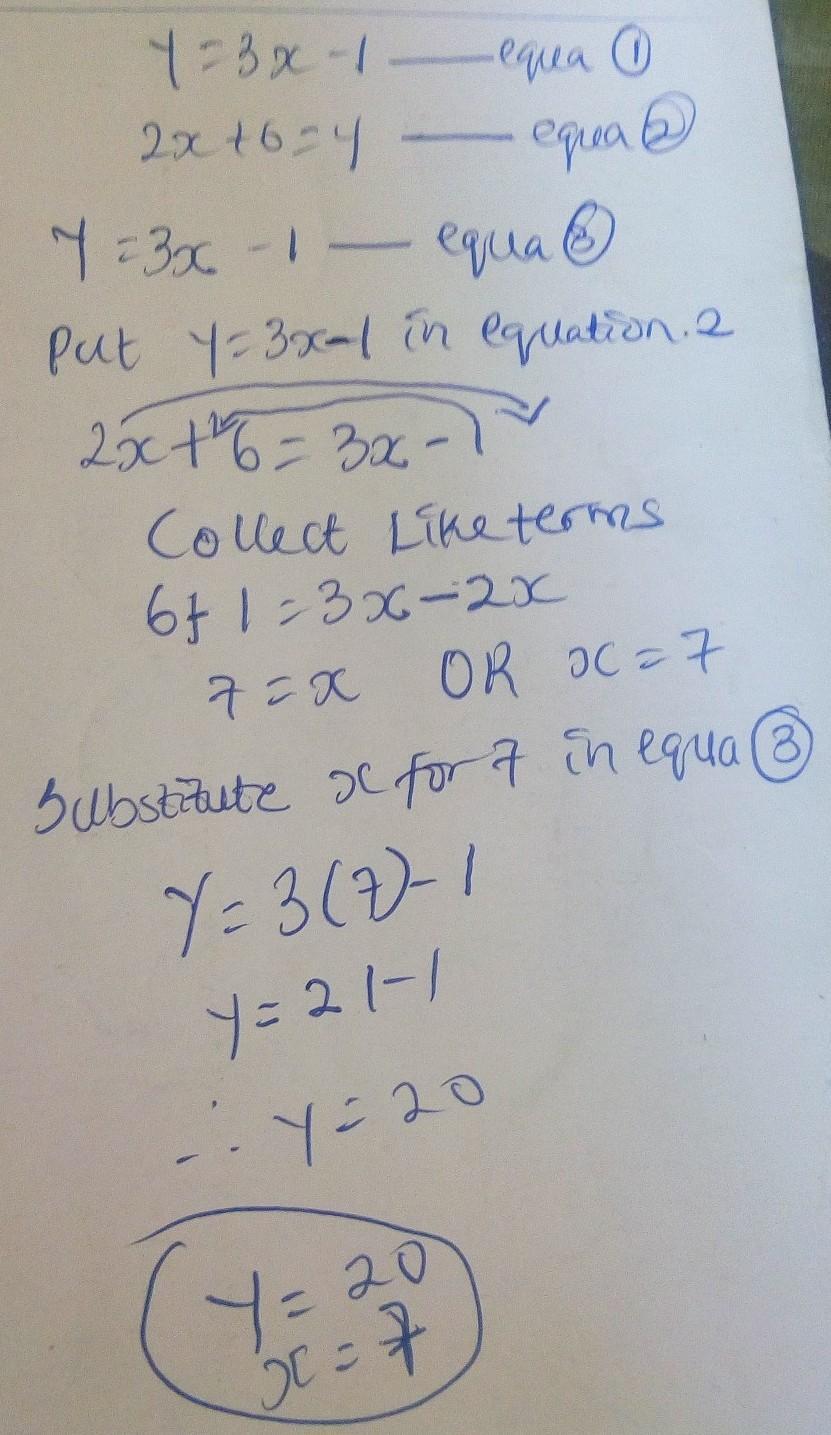 y = 3x - 1 — equa ①
2x + 6 = y — equa ②
y = 3x - 1 — equa ③
Put y = 3x - 1 in equation. 2
2x + 6 = 3x - 1
Collect Like terms
6 + 1 = 3x - 2x
7 = x OR x = 7
Substitute x for 7 in equa ③
y = 3(7) - 1
y = 21 - 1
∴ y = 20
y = 20
x = 7